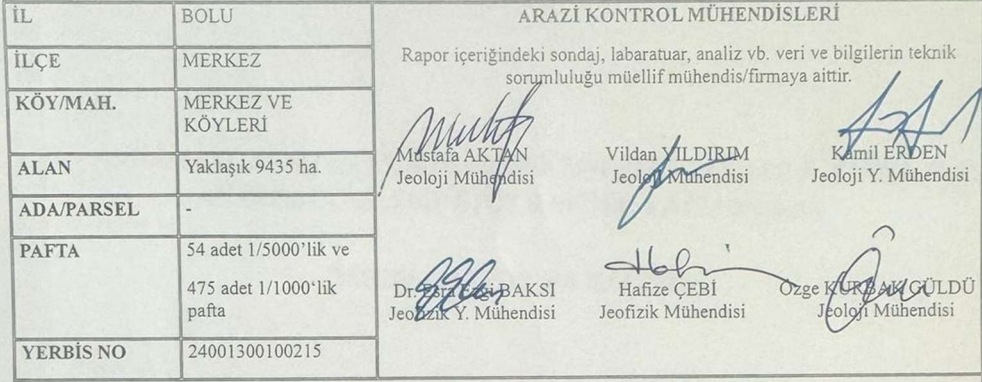 İL BOLU
İLÇE MERKEZ
KÖY/MAH. MERKEZ VE
KÖYLERİ
ALAN Yaklaşık 9435 ha.
ADA/PARSEL -
PAFTA 54 adet 1/5000’lik ve
475 adet 1/1000‘lik
pafta
YERBİS NO 24001300100215
ARAZİ KONTROL MÜHENDİSLERİ
Rapor içeriğindeki sondaj, labaratuar, analiz vb. veri ve bilgilerin teknik
sorumluluğu müellif mühendis/firmaya aittir.
Mustafa AKTAN Vildan YILDIRIM Kamil ERDEN
Jeoloji Mühendisi Jeoloji Mühendisi Jeoloji Y. Mühendisi
Dr. Esra Ezgi BAKSI Hafize ÇEBİ Özge KURBAK GÜLDÜ
Jeofizik Y. Mühendisi Jeofizik Mühendisi Jeoloji Mühendisi